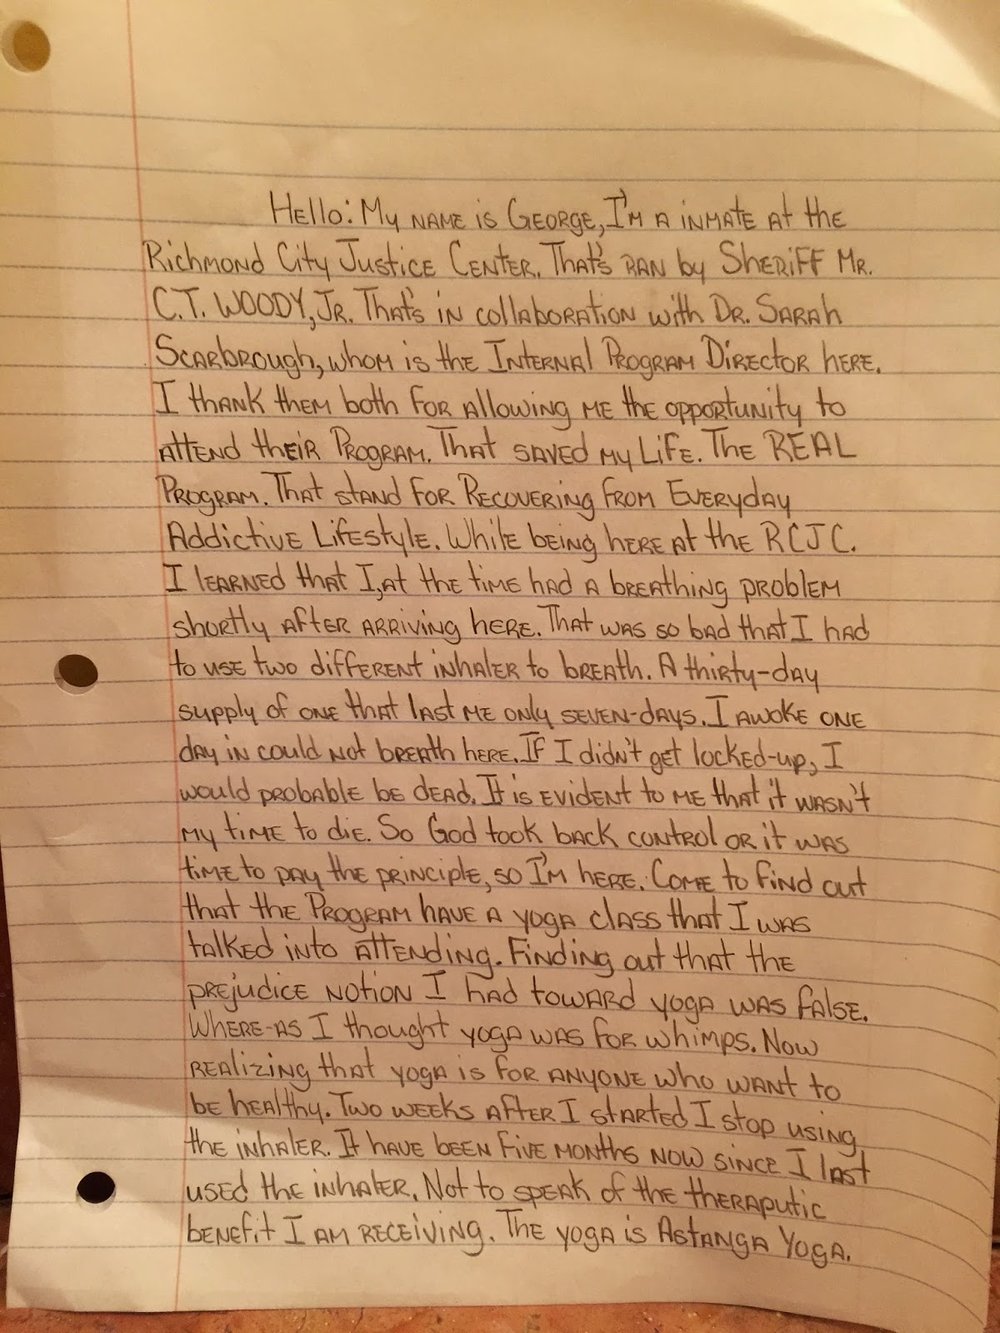 Hello: My name is George, I'm a inmate at the
Richmond City Justice Center. That's ran by Sheriff Mr.
C.T. Woody, Jr. That's in collaboration with Dr. Sarah
Scarbrough, whom is the Internal Program Director here.
I thank them both for allowing me the opportunity to
attend their Program. That saved my life. The REAL
Program. That stand for Recovering from Everyday
Addictive Lifestyle. While being here at the RCJC.
I learned that I, at the time had a breathing problem
shortly after arriving here. That was so bad that I had
to use two different inhaler to breath. A thirty-day
supply of one that last me only seven-days. I awoke one
day in could not breath here. If I didn't get locked-up, I
would probable be dead. It is evident to me that it wasn't
my time to die. So God took back control or it was
time to pay the principle, so I'm here. Come to find out
that the Program have a yoga class that I was
talked into attending. Finding out that the
prejudice notion I had toward yoga was false.
Where-as I thought yoga was for whimps. Now
realizing that yoga is for anyone who want to
be healthy. Two weeks after I started I stop using
the inhaler. It have been five months now since I last
used the inhaler. Not to speak of the theraputic
benefit I am receiving. The yoga is Astanga Yoga.